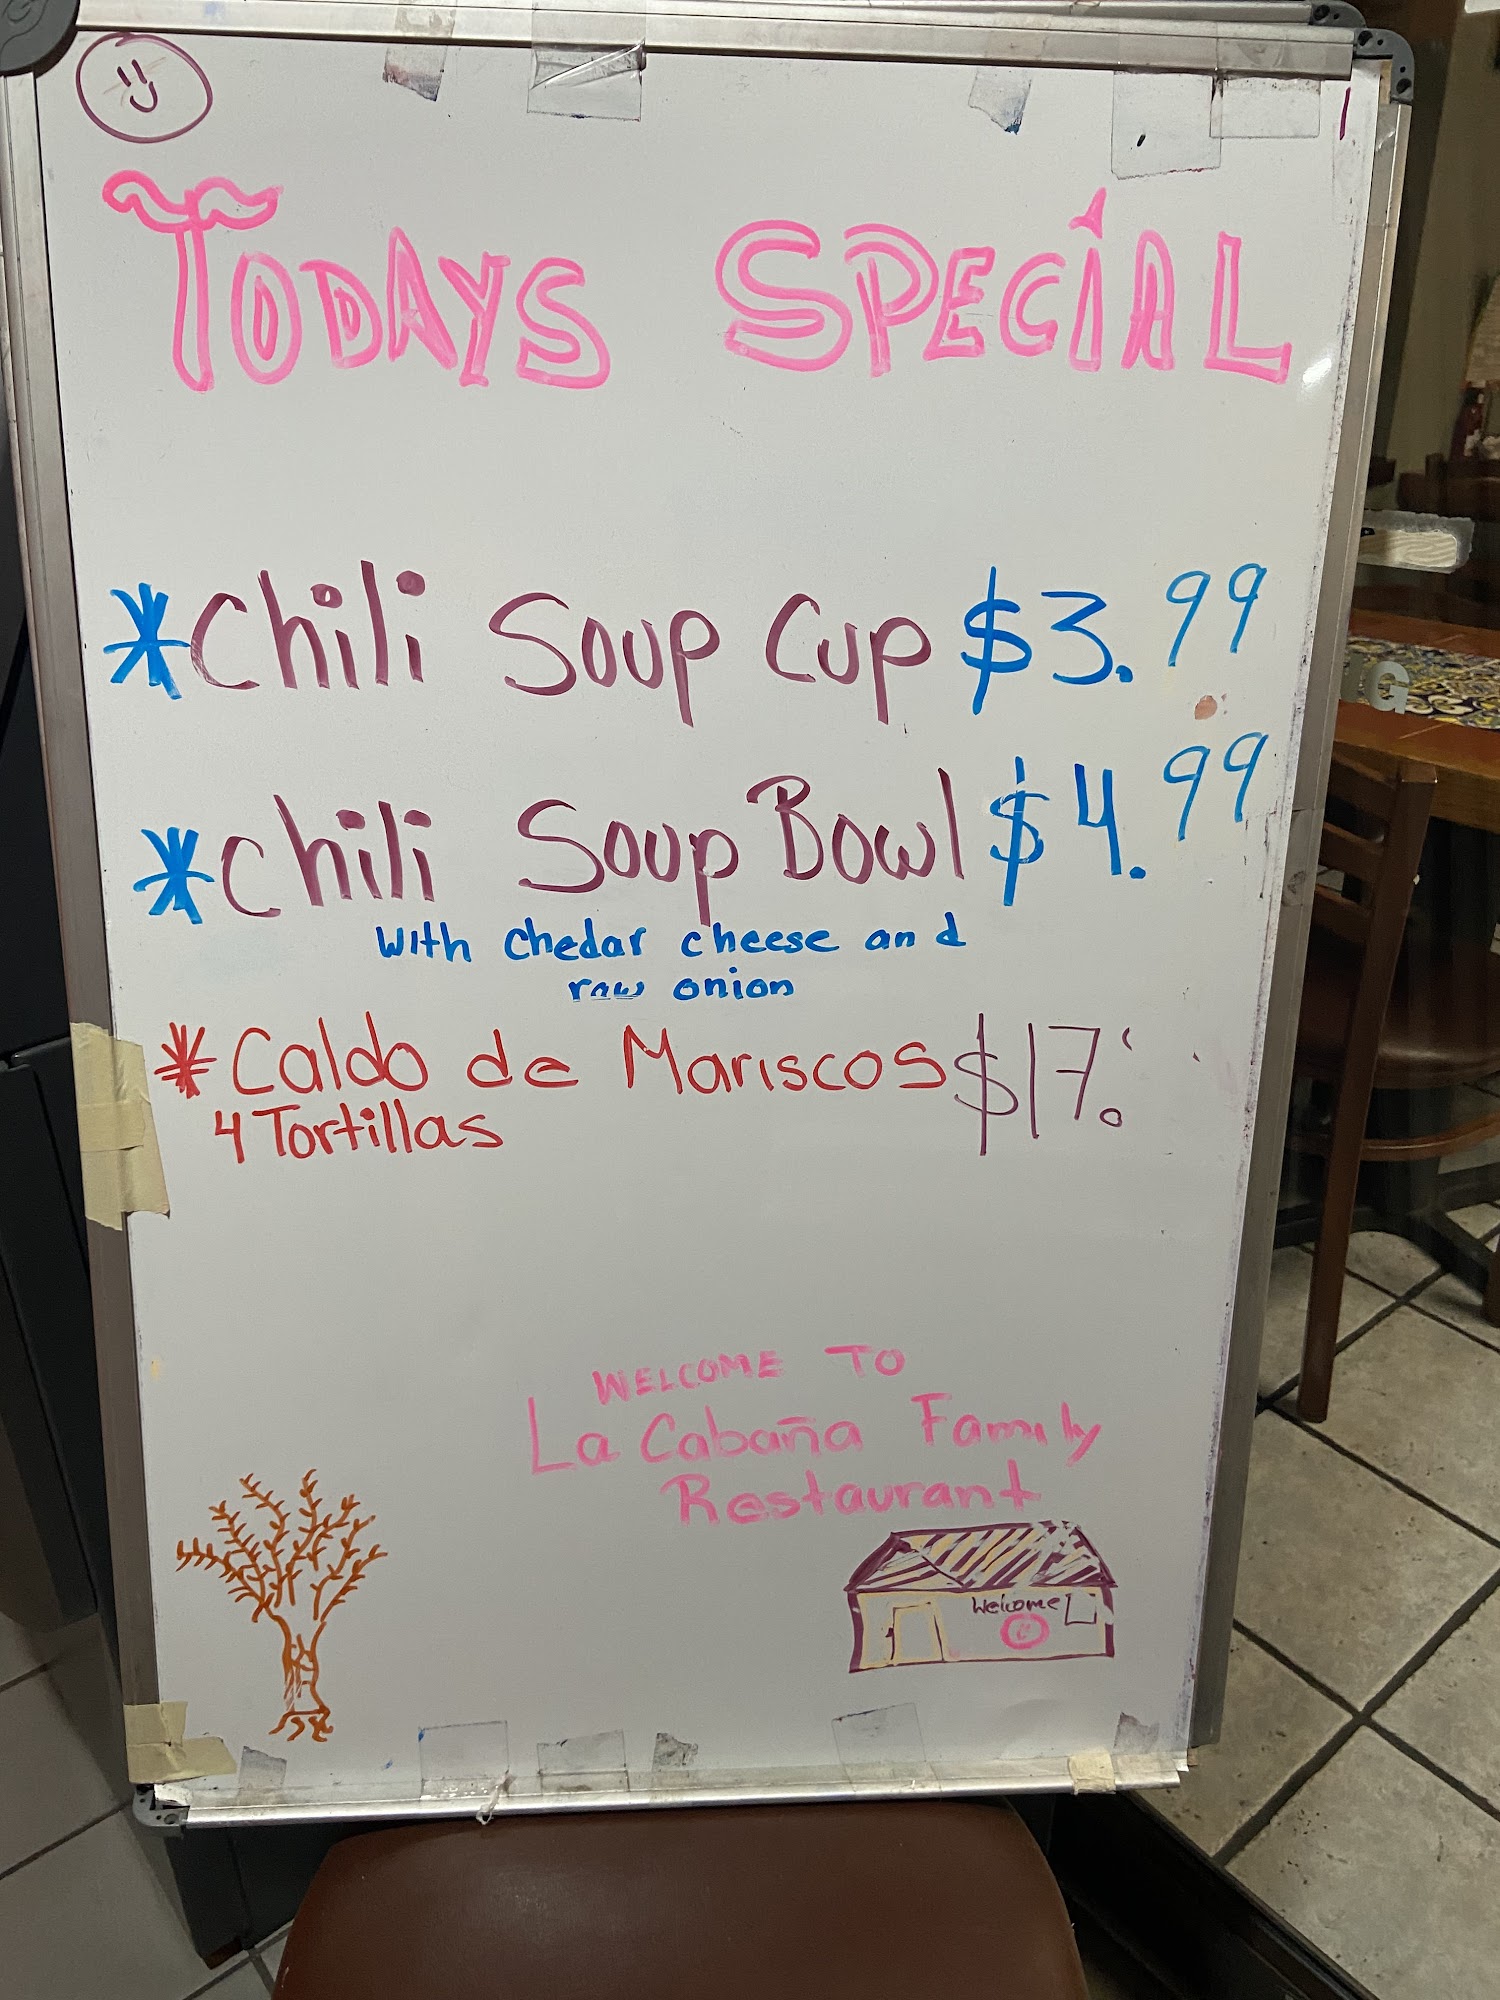 TODAYS SPECIAL
*Chili Soup Cup $3.99
*Chili Soup Bowl $4.99
with chedar cheese and
raw onion
*Caldo de Mariscos $17.
4 Tortillas
WELCOME TO
La Cabaña Family
Restaurant
Welcome